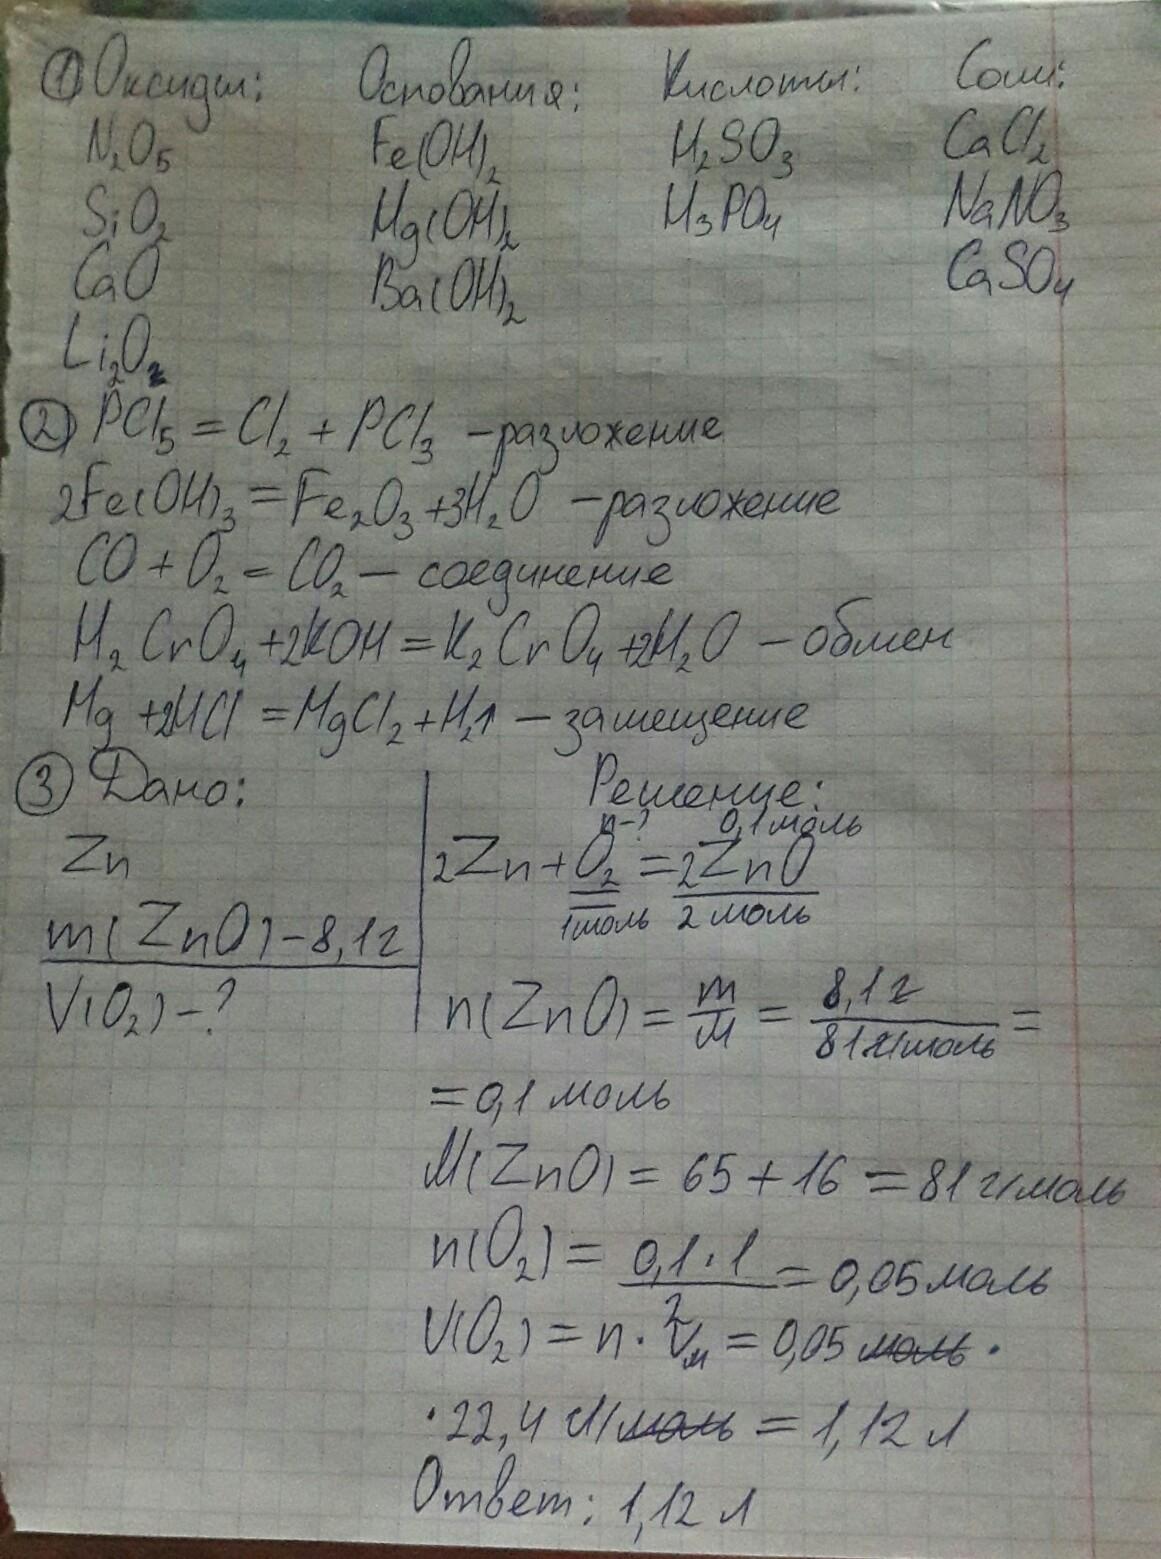 ① Оксиды: Основания: Кислоты: Соли:
N₂O₅ Fe(OH)₂ H₂SO₃ CaCl₂
SiO₂ Mg(OH)₂ H₃PO₄ NaNO₃
CaO Ba(OH)₂ CaSO₄
Li₂O
② PCl₅ = Cl₂ + PCl₃ – разложение
2Fe(OH)₃ = Fe₂O₃ + 3H₂O – разложение
CO + O₂ = CO₂ – соединение
H₂CrO₄ + 2KOH = K₂CrO₄ + 2H₂O – обмен
Mg + 2HCl = MgCl₂ + H₂↑ – замещение
③ Дано:
Zn
m(ZnO) – 8,1г
V(O₂) – ?
Решение:
n-? 0,1моль
2Zn + O₂ = 2ZnO
1моль 2 моль
n(ZnO) = m/M = 8,1 г/81 г/моль =
= 0,1 моль
M(ZnO) = 65 + 16 = 81 г/моль
n(O₂) = 0,1·1/2 = 0,05 моль
V(O₂) = n · Vм = 0,05 моль ·
· 22,4 л/моль = 1,12 л
Ответ: 1,12 л